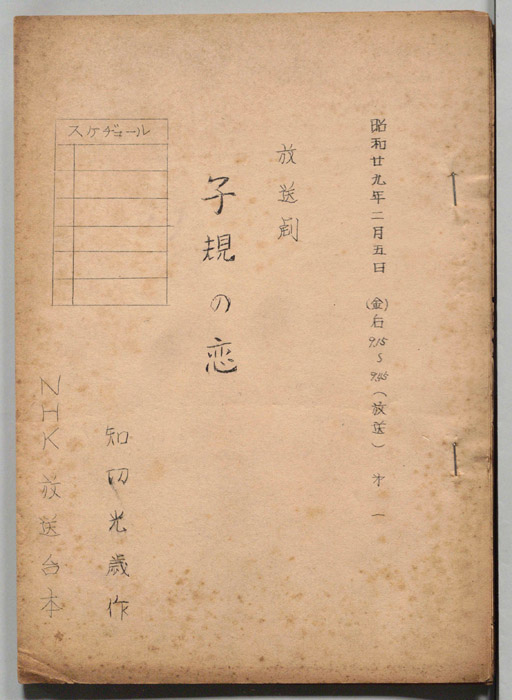 昭和廿九年二月五日 (金)后9.15〜9.45(放送) 才一
放送劇
子規の恋
スケヂュール
知切光歳作
NHK放送台本